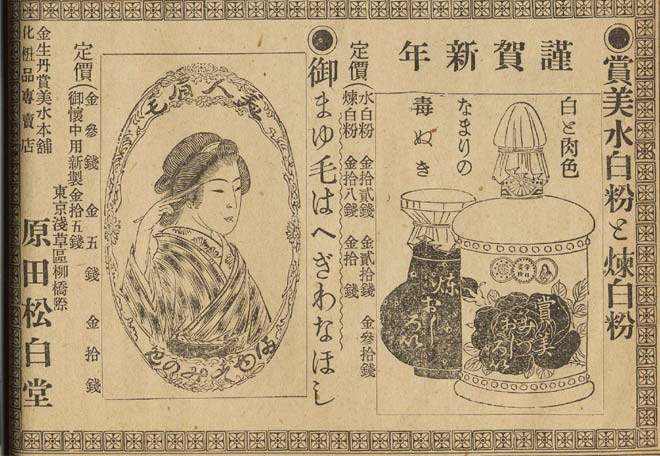 ●賞美水白粉と煉白粉
謹賀新年
白と肉色
なまりの
毒ぬき
賞美
みづ
おしろい
煉おしろい
定價
水白粉 金拾貳錢 金貳拾錢 金參拾錢
煉白粉 金拾八錢 金拾錢
●御まゆ毛はへぎわなほし
美人眉毛
定價
金參錢 金五錢 金拾錢
御懷中用新製金拾五錢
東京淺草區柳橋際
原田松白堂
金生丹賞美水本舗
化粧品專賣店